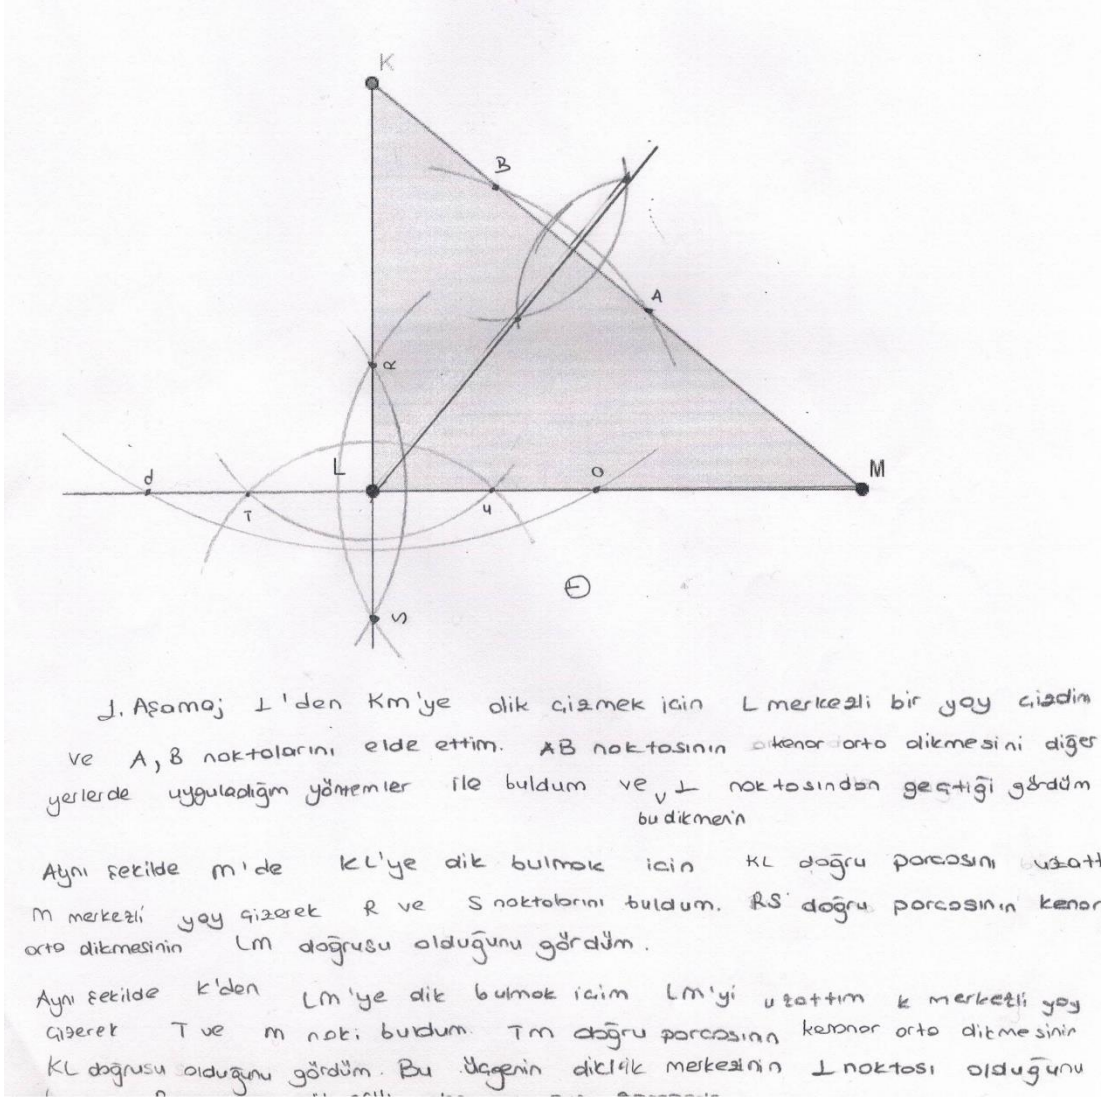 K
B
A
R
L
M
d
T
4
O
S
1. Aşamaj L'den Km'ye dik çizmek için L merkezli bir yay çizdim
ve A, B noktalarını elde ettim. AB noktasının kenar orta dikmesini diğer
yerlerde uyguladığım yöntemler ile buldum ve L noktasından geçtiği gördüm
bu dikmenin
Aynı şekilde m'de KL'ye dik bulmak için KL doğru parcasını uzatt
M merkezli yay çizerek R ve S noktalarını buldum. RS doğru parcasının kenar
orta dikmesinin LM doğrusu olduğunu gördüm.
Aynı şekilde K'den LM'ye dik bulmak icim LM'yi uzattım k merkezli yay
çizerek T ve m nok: buldum. TM doğru parcasının kenar orta dikmesinin
KL doğrusu olduğunu gördüm. Bu üçgenin diklik merkezinin L noktası olduğunu